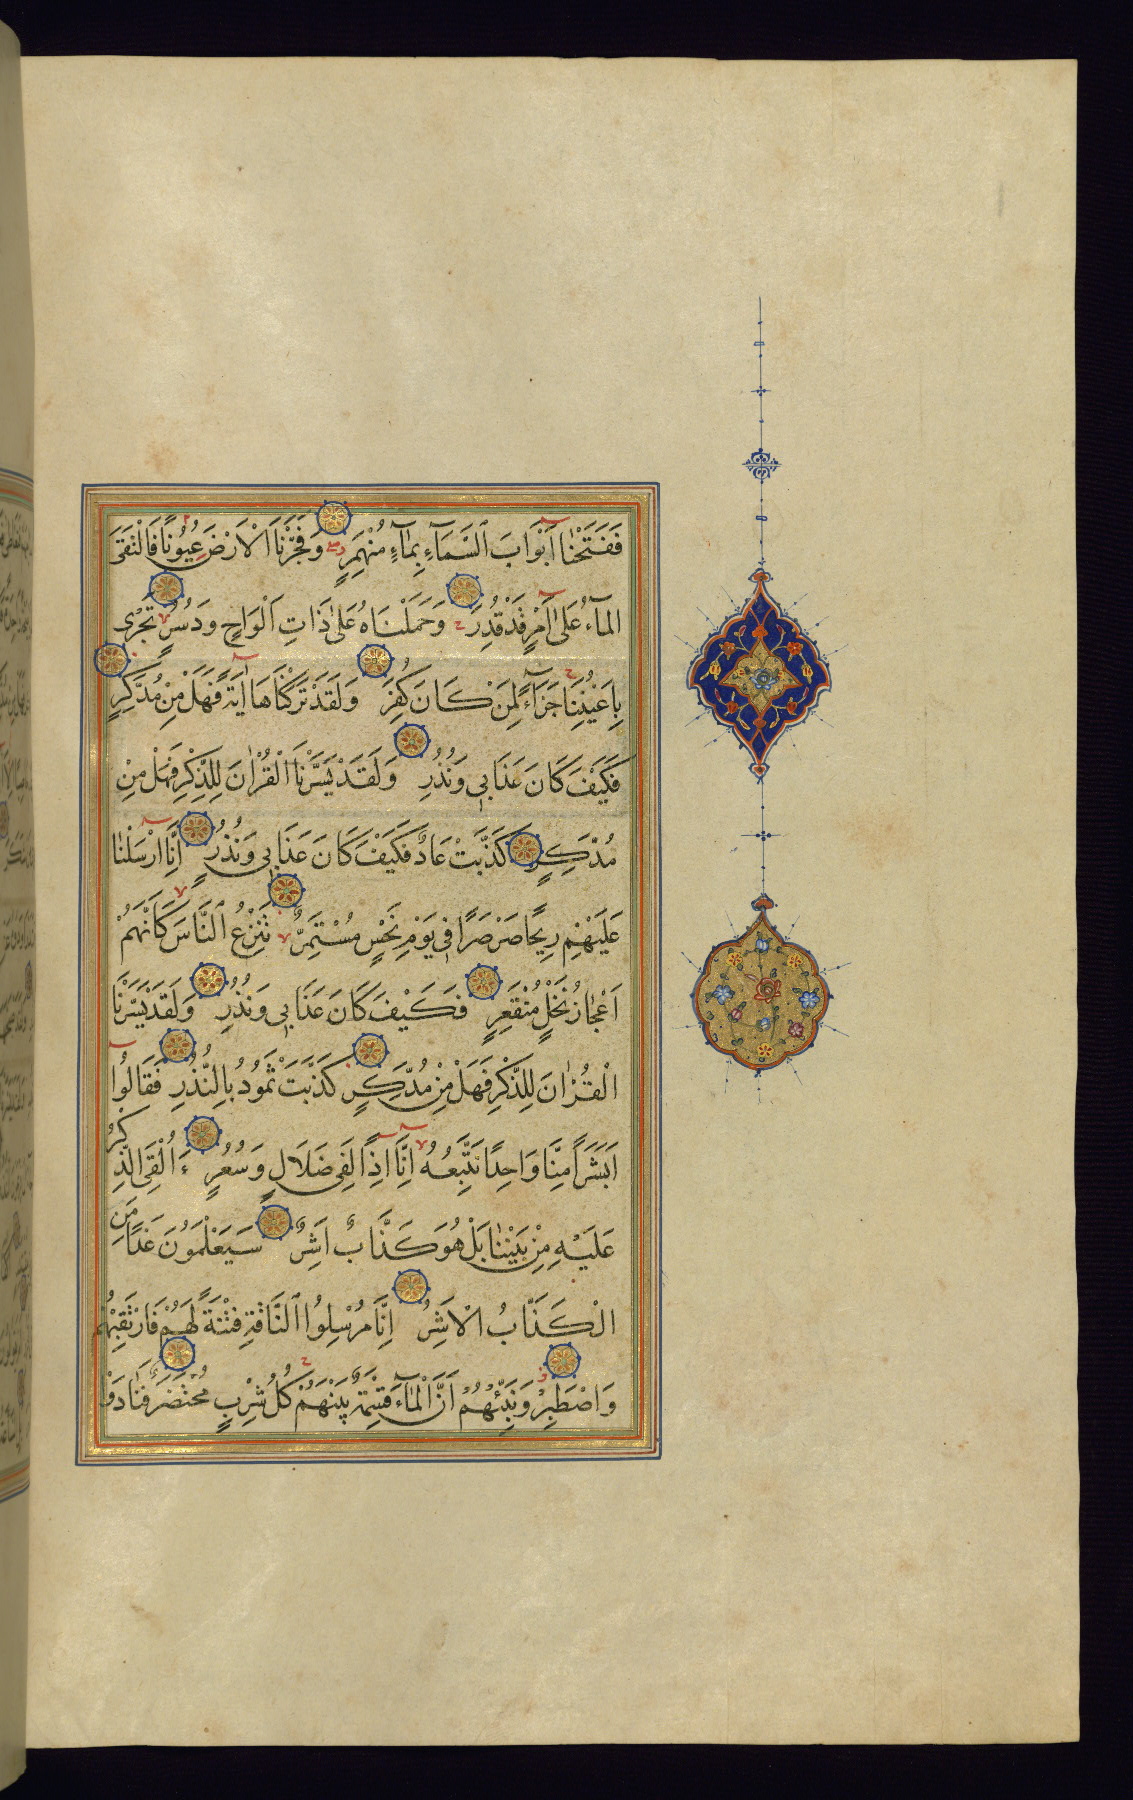 فَفَتَحْنَا أَبْوَابَ ٱلسَّمَآءِ بِمَآءٍ مُنْهَمِرٍ وَفَجَّرْنَا الْاَرْضَ عُيُونًا فَالْتَقَى
الْمَآءُ عَلٰٓى اَمْرٍ قَدْ قُدِرَ وَحَمَلْنَاهُ عَلٰى ذَاتِ اَلْوَاحٍ وَدُسُرٍ تَجْرِى
بِاَعْيُنِنَا جَزَآءً لِمَنْ كَانَ كُفِرَ وَلَقَدْ تَرَكْنَاهَآ اٰيَةً فَهَلْ مِنْ مُدَّكِرٍ
فَكَيْفَ كَانَ عَذَابِي وَنُذُرِ وَلَقَدْ يَسَّرْنَا الْقُرْاٰنَ لِلذِّكْرِ فَهَلْ مِنْ
مُدَّكِرٍ كَذَّبَتْ عَادٌ فَكَيْفَ كَانَ عَذَابِي وَنُذُرِ اِنَّآ اَرْسَلْنَا
عَلَيْهِمْ رِيحًا صَرْصَرًا فِي يَوْمِ نَحْسٍ مُسْتَمِرٍّ تَنْزِعُ ٱلنَّاسَ كَاَنَّهُمْ
اَعْجَازُ نَخْلٍ مُنْقَعِرٍ فَكَيْفَ كَانَ عَذَابِي وَنُذُرِ وَلَقَدْ يَسَّرْنَا
الْقُرْاٰنَ لِلذِّكْرِ فَهَلْ مِنْ مُدَّكِرٍ كَذَّبَتْ ثَمُودُ بِالنُّذُرِ فَقَالُوٓا
اَبَشَرًا مِنَّا وَاحِدًا نَتَّبِعُهُ اِنَّآ اِذًا لَفِى ضَلَالٍ وَسُعُرٍ ءَاُلْقِىَ الذِّكْرُ
عَلَيْهِ مِنْ بَيْنِنَا بَلْ هُوَ كَذَّابٌ اَشِرٌ سَيَعْلَمُونَ غَدًا مَنِ
الْكَذَّابُ الْاَشِرُ اِنَّا مُرْسِلُوا ٱلنَّاقَةِ فِتْنَةً لَهُمْ فَارْتَقِبْهُمْ
وَاصْطَبِرْ وَنَبِّئْهُمْ اَنَّ الْمَآءَ قِسْمَةٌ بَيْنَهُمْ كُلُّ شِرْبٍ مُحْتَضَرٌ فَنَادَوْا